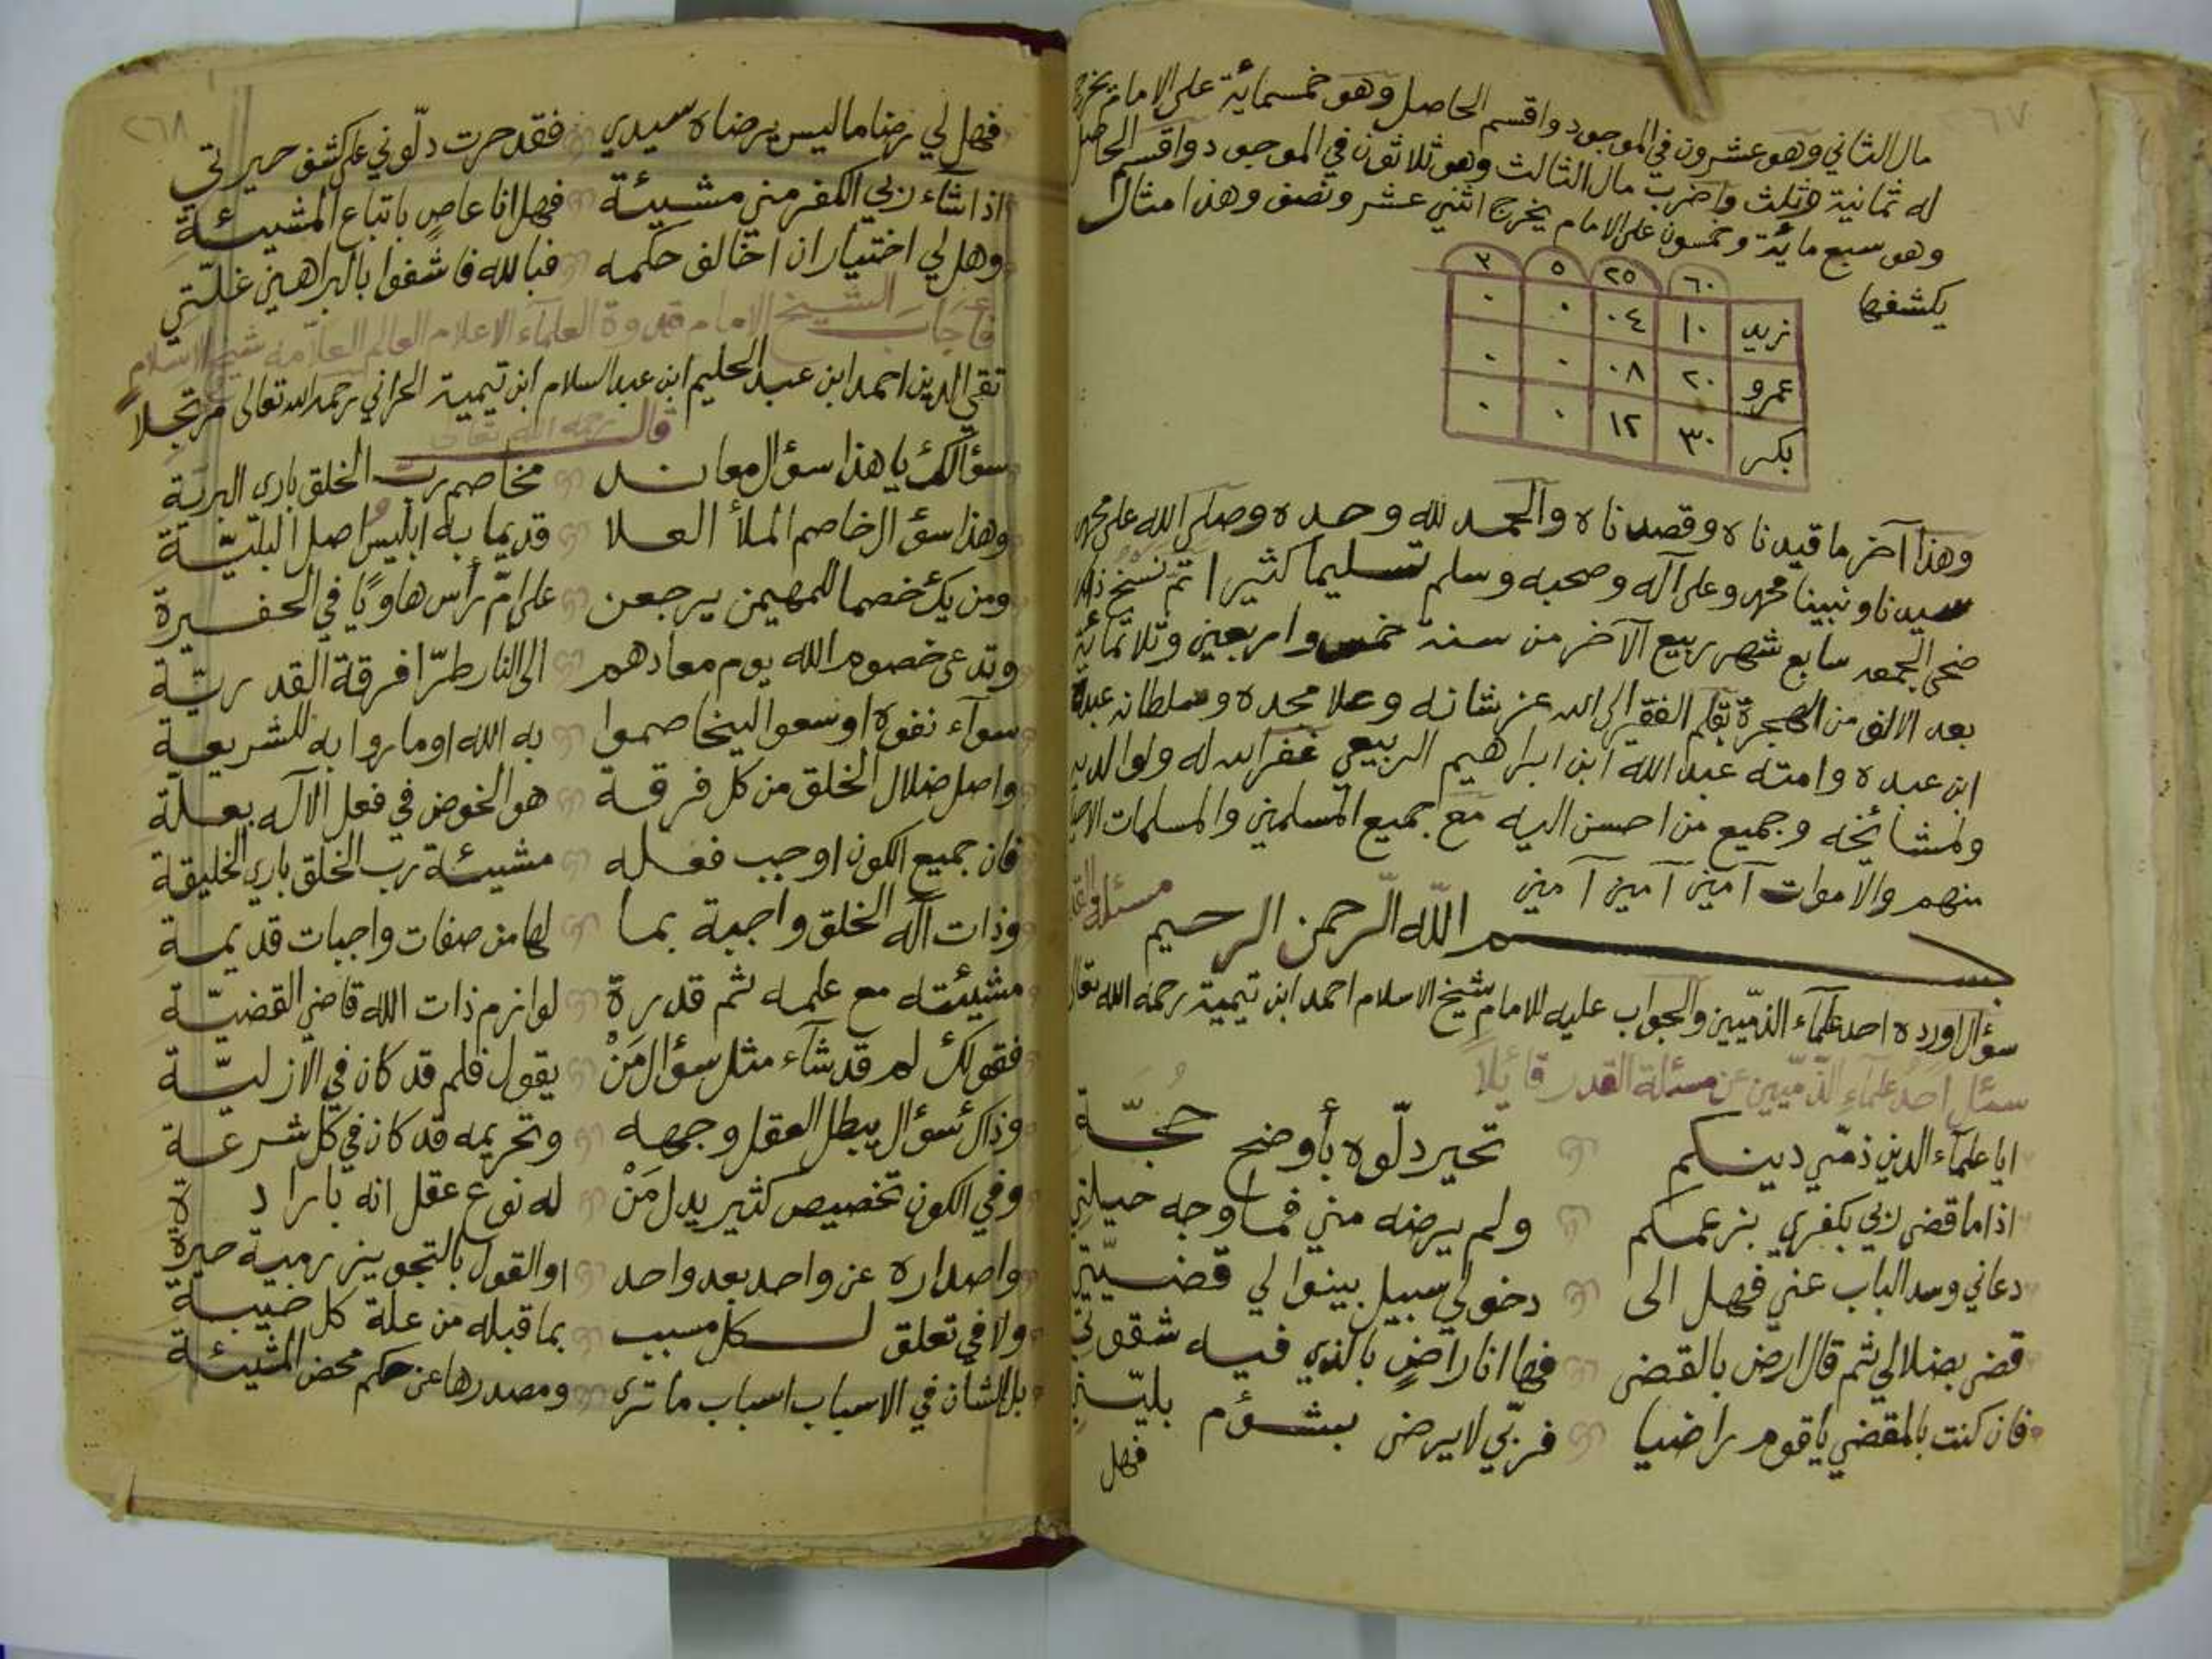 ٦٧
مال الثاني وهو عشرون في الموجود واقسم الحاصل وهو خمسمائية على الامام يخرج
له ثمانية وثلث واضرب مال الثالث وهو ثلاثون في الموجود واقسم الحاصل
وهو سبع مائية وخمسون على الامام يخرج اثني عشر ونصف وهذا مثال
يكشفها
٦٠ ٢٥ ٥ ٣
زيد ١٠ ٠٤ ٠ ٠
عمرو ٢٠ ٠٨ ٠ ٠
بكر ٣٠ ١٢ ٠ ٠
وهذا آخر ما قيدناه وقصدناه والحمد لله وحده وصلى الله على محمد
سيدنا ونبينا محمد وعلى آله وصحبه وسلم تسليما كثيرا تم نسخ
ضحى الجمعه سابع شهر ربيع الآخر من سنة خمس واربعين وثلاثمائية
بعد الالف من الهجرة بقلم الفقير الى الله عز شانه وعلا مجده وسلطانه عبده
ابن عبده وامته عبد الله ابن ابراهيم الربيعي غفر الله له ولوالديه
ولمشائخه وجميع من احسن اليه مع جميع المسلمين والمسلمات
منهم والاموات آمين آمين آمين
بسم الله الرحمن الرحيم
سؤال اورده احد علماء الذميين والجواب عليه للامام شيخ الاسلام احمد ابن تيمية رحمه الله تعالى
سئل احد علماء الذميين عن مسئلة القدر قائلا
ايا علماء الدين ذمي دينكم تحير دلوه بأوضح حجة
اذا ما قضى ربي بكفري بزعمكم ولم يرضه مني فما وجه حيلتي
دعاني وسد الباب عني فهل الى دخولي سبيل بينوا لي قضيتي
قضى بضلالي ثم قال ارض بالقضى فها انا راضٍ بالذي فيه شقوتي
فان كنت بالمقضي يا قوم راضيا فربي لا يرضى بشؤم بليتي
فهل
٢٦٨
فهل لي رضا ما ليس يرضاه سيدي فقد حرت دلوني على كشف حيرتي
اذا شاء ربي الكفر مني مشيئة فهل انا عاصٍ باتباع المشيئة
وهل لي اختيار ان اخالف حكمه فبالله فاشفوا بالبراهين غلتي
فأجاب الشيخ الامام قدوة العلماء الاعلام العالم العلامة شيخ الاسلام
تقي الدين احمد ابن عبد الحليم ابن عبد السلام ابن تيمية الحراني رحمه الله تعالى مرتجلاً
قال رحمه الله تعالى
سؤالك يا هذا سؤال معاند مخاصم رب الخلق باري البرية
وهذا سؤال خاصم الملأ العلا قديما به ابليس اصل البلية
ومن يك خصما للمهيمن يرجعن على ام رأس هاويًا في الحفيرة
وتدعى خصوم الله يوم معادهم الى النار طرّا فرقة القدرية
سوآء نفوه او سعوا ليخاصموا به الله او ماروا به للشريعة
واصل ضلال الخلق من كل فرقة هو الخوض في فعل الاله بعلة
فان جميع الكون اوجب فعله مشيئة رب الخلق باري الخليقة
وذات اله الخلق واجبة بما لها من صفات واجبات قديمة
مشيئته مع علمه ثم قدرة لوازم ذات الله قاضي القضية
فقولك لم قد شآء مثل سؤال مَنْ يقول فلم قد كان في الازلية
وذاك سؤال يبطل العقل وجهه وتحريمه قد كان في كل شرعة
وفي الكون تخصيص كثير يدل مَنْ له نوع عقل انه بارادة
واصداره عن واحد بعد واحد او القول بالتجويز رمية حيرة
ولا في تعلق لكل مسبب بما قبله من علة كل خيبة
بل الشأن في الاسباب اسباب ما ترى ومصدرها عن حكم محض المشيئة